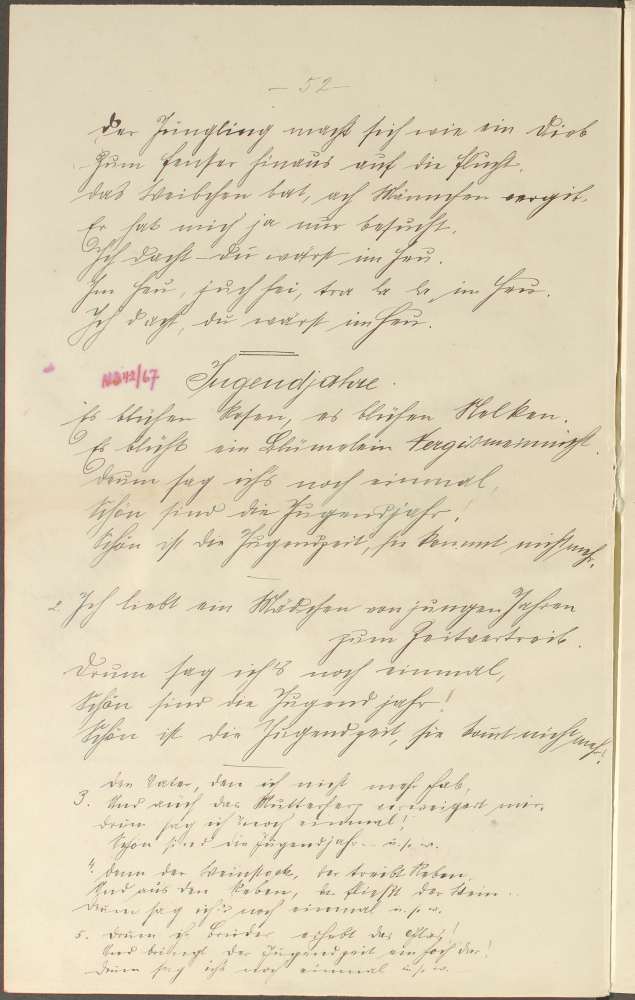 – 52 –
Der Jüngling macht sich wie ein Dieb
Zum Fenster hinaus auf die Flucht.
Das Weibchen bat, ach Männchen vergib,
Er hat mich ja nur besucht.
Ich dacht – du wärst im Heu.
Im Heu, juchhei, tra la la, im Heu.
Ich dacht, du wärst im Heu.
No 42/67
Jugendjahre.
Es blühen Rosen, es blühen Nelken,
Es blüht ein Blümelein Vergissmeinnicht.
Drum sag ich's noch einmal,
Schön sind die Jugendjahr!
Schön ist die Jugendzeit, sie kommt nicht mehr.
2. Ich liebt ein Mädchen von jungen Jahren
zum Zeitvertreib.
Drum sag ich's noch einmal,
Schön sind die Jugendjahr!
Schön ist die Jugendzeit, sie kom̅t nicht mehr!
Den Vater, den ich nicht mehr hab,
3. Und auch das Mutterherz verweigert mir.
Drum sag ich noch einmal!
Schön sind die Jugendjahr u.s.w.
4. Denn der Weinstock, der treibt Reben
Und aus den Reben, da fliesst der Wein.
Drum sag ich's noch einmal u.s.w.
5. Drum ihr Brüder erhebt das Glas!
Und bringt der Jugendzeit ein hoch dar!
Drum sag ichs noch einmal u.s.w.